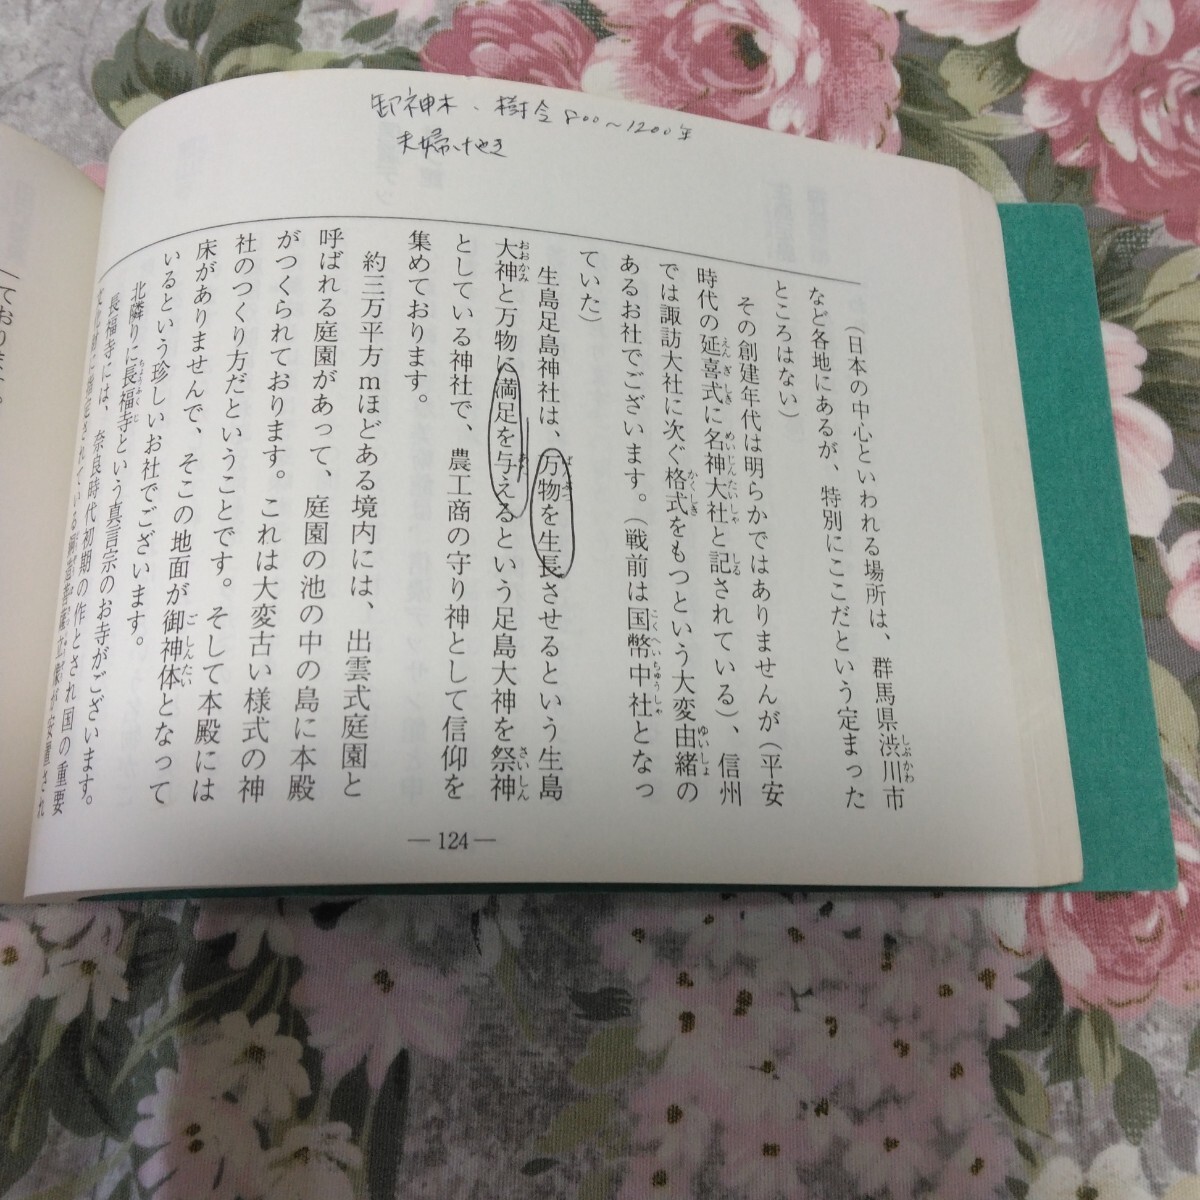 御神木、樹令800〜1200年
夫婦けやき
（日本の中心といわれる場所は、群馬県渋川市
など各地にあるが、特別にここだという定まった
ところはない）
その創建年代は明らかではありませんが（平安
時代の延喜式に名神大社と記されている）、信州
では諏訪大社に次ぐ格式をもつという大変由緒の
あるお社でございます。（戦前は国幣中社となっ
ていた）
生島足島神社は、万物を生長させるという生島
大神と万物に満足を与えるという足島大神を祭神
としている神社で、農工商の守り神として信仰を
集めております。
約三万平方mほどある境内には、出雲式庭園と
呼ばれる庭園があって、庭園の池の中の島に本殿
がつくられております。これは大変古い様式の神
社のつくり方だということです。そして本殿には
床がありませんで、そこの地面が御神体となって
いるという珍しいお社でございます。
北隣りに長福寺という真言宗のお寺がございます。
長福寺には、奈良時代初期の作とされ国の重要
―124―
ております。